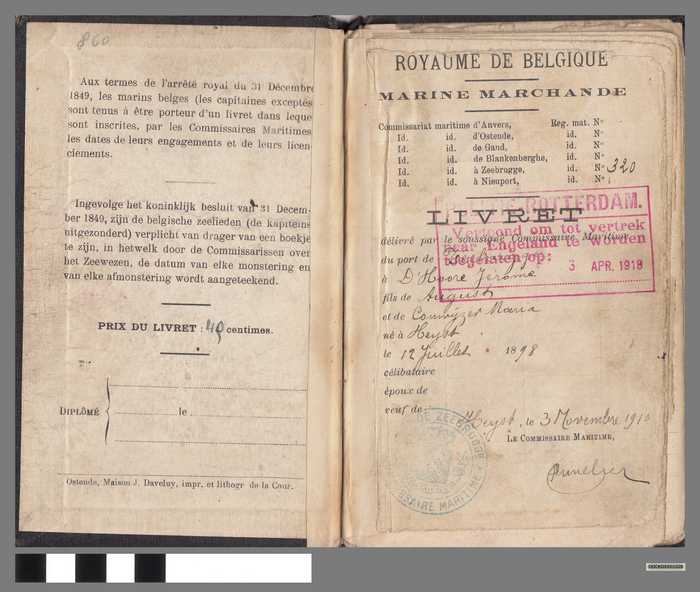 860
Aux termes de l'arrêté royal du 31 Décembre
1849, les marins belges (les capitaines exceptés
sont tenus à être porteur d'un livret dans leque
sont inscrites, par les Commissaires Maritimes
les dates de leurs engagements et de leurs licen-
ciements.
Ingevolge het koninklijk besluit van 31 Decem-
ber 1849, zijn de belgische zeelieden (de kapiteins
uitgezonderd) verplicht van drager van een boekje
te zijn, in hetwelk door de Commissarissen over
het Zeewezen, de datum van elke monstering en
van elke afmonstering wordt aangeteekend.
PRIX DU LIVRET : 40 centimes.
DIPLÔMÉ le
Ostende, Maison J. Daveluy, impr. et lithogr de la Cour.
ROYAUME DE BELGIQUE
MARINE MARCHANDE
Commissariat maritime d'Anvers, Reg. mat. N°
Id. id. d'Ostende, id. N°
Id. id. de Gand, id. N°
Id. id. de Blankenberghe, id. N°
Id. id. à Zeebrugge, id. N° 320
Id. id. à Nieuport, id. N°
ROTTERDAM.
LIVRET
Vertoond om tot vertrek
naar Engeland te worden
toegelaten op:
3 APR. 1918
délivré par le soussigné Commissaire Maritime
du port de Zeebrugge
à D'Hoore Jérôme
fils de August
et de Maria
né à Heyst
le 12 Juillet 1898
célibataire
époux de
veuf de
Heyst, le 3 Novembre 1910
LE COMMISSAIRE MARITIME,
DE ZEEBRUGGE
COMMISSAIRE MARITIME